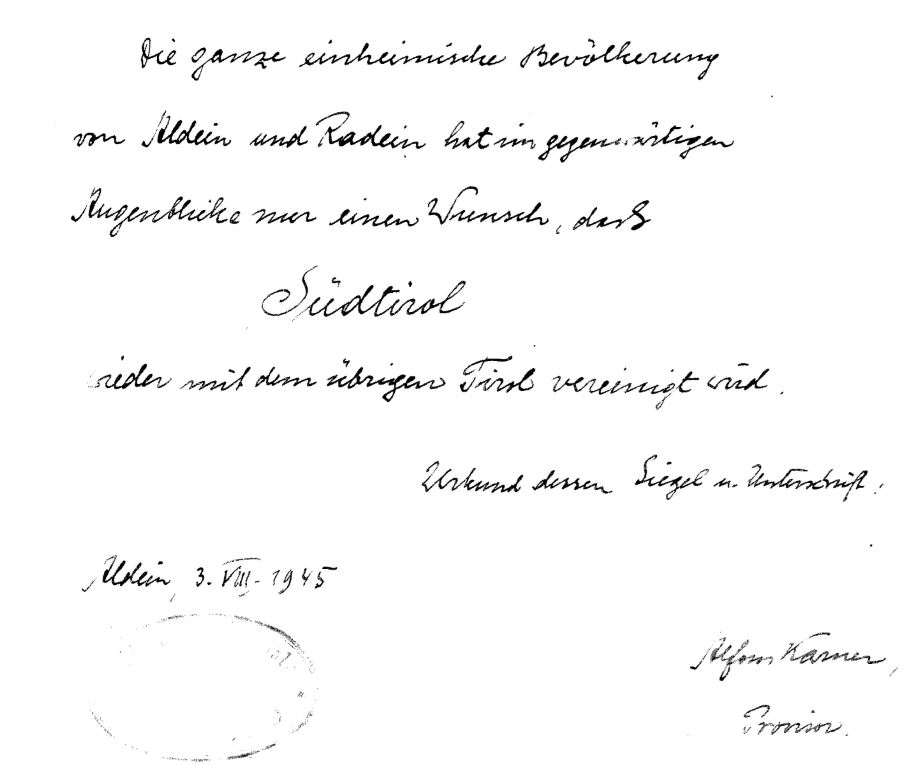 Die ganze einheimische Bevölkerung
von Aldein und Radein hat im gegenwärtigen
Augenblicke nur einen Wunsch, daß
Südtirol
wieder mit dem übrigen Tirol vereinigt wird.
Urkund dessen Siegel u. Unterschrift:
Aldein, 3. VIII. 1945
Alfons Karner,
Provisor.